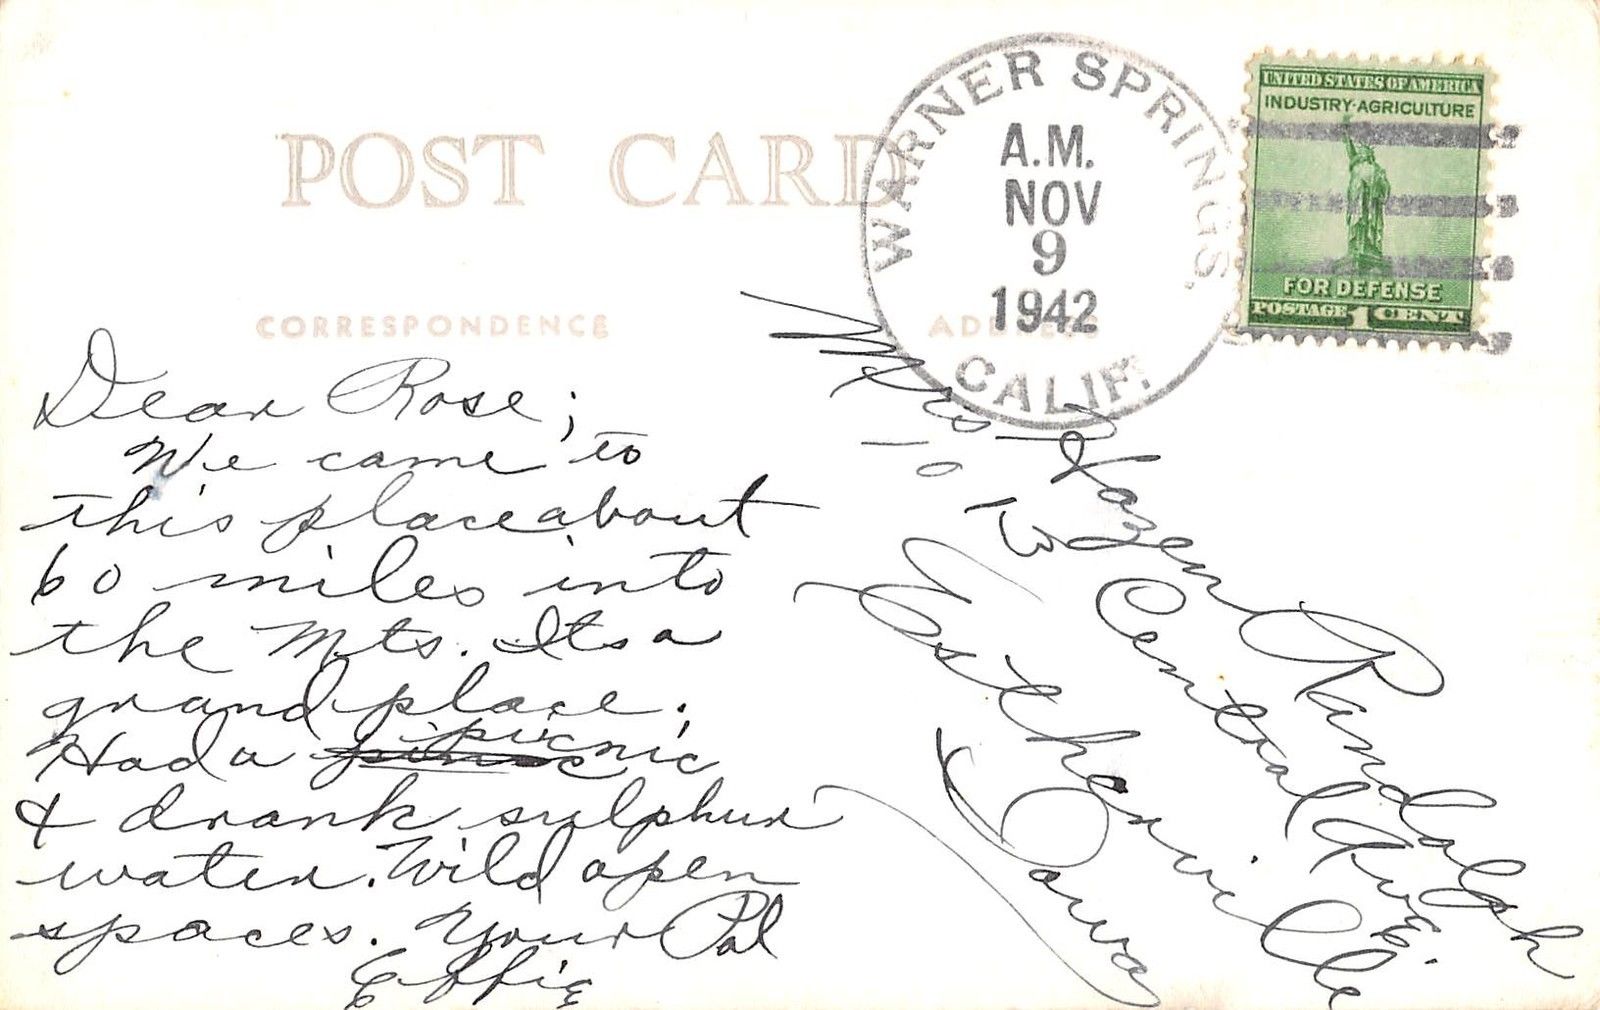 POST CARD
CORRESPONDENCE
ADDRESS
WARNER SPRINGS,
CALIF.
A.M.
NOV
9
1942
UNITED STATES OF AMERICA
INDUSTRY·AGRICULTURE
FOR DEFENSE
POSTAGE 1 CENT
Dear Rose;
We came to
this place about
60 miles into
the Mts. Its a
grand place.
Had a picnic
& drank sulphur
water. Wild open
spaces. Your Pal
Effie
Mrs. Hazen Randalph
Central Ave.
Estherville
Iowa